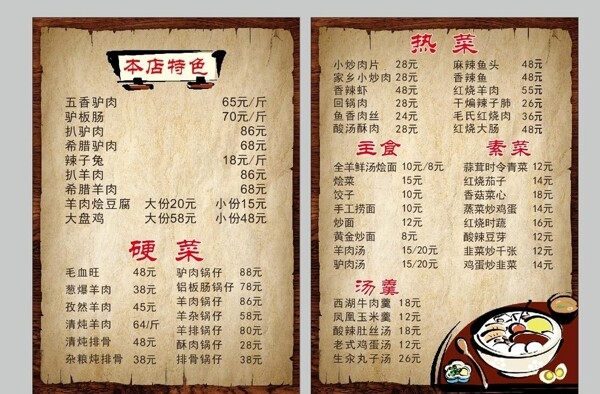 本店特色
五香驴肉 65元/斤
驴板肠 70元/斤
扒驴肉 86元
希腊驴肉 68元
辣子兔 18元/斤
扒羊肉 86元
希腊羊肉 68元
羊肉烩豆腐 大份20元 小份15元
大盘鸡 大份58元 小份48元
硬菜
毛血旺 48元
葱爆羊肉 38元
孜然羊肉 45元
清炖羊肉 64/斤
清炖排骨 48元
杂粮炖排骨 38元
驴肉锅仔 88元
铝板肠锅仔 78元
羊肉锅仔 86元
羊杂锅仔 58元
羊排锅仔 80元
酥肉锅仔 28元
排骨锅仔 38元
热菜
小炒肉片 28元
家乡小炒肉 28元
香辣虾 48元
回锅肉 28元
鱼香肉丝 24元
酸汤酥肉 28元
麻辣鱼头 48元
香辣鱼 48元
红烧羊肉 55元
干煸辣子肺 26元
毛氏红烧肉 36元
红烧大肠 48元
主食
全羊鲜汤烩面 10元/8元
烩菜 15元
饺子 10元
手工捞面 10元
炒面 12元
黄金炒面 8元
羊肉汤 15/20元
驴肉汤 15/20元
素菜
蒜茸时令青菜 12元
红烧茄子 14元
香菇菜心 18元
蒸菜炒鸡蛋 14元
红烧时蔬 16元
酸辣豆芽 12元
韭菜炒千张 12元
鸡蛋炒韭菜 14元
汤羹
西湖牛肉羹 18元
凤凰玉米羹 12元
酸辣肚丝汤 18元
老式鸡蛋汤 12元
生汆丸子汤 26元